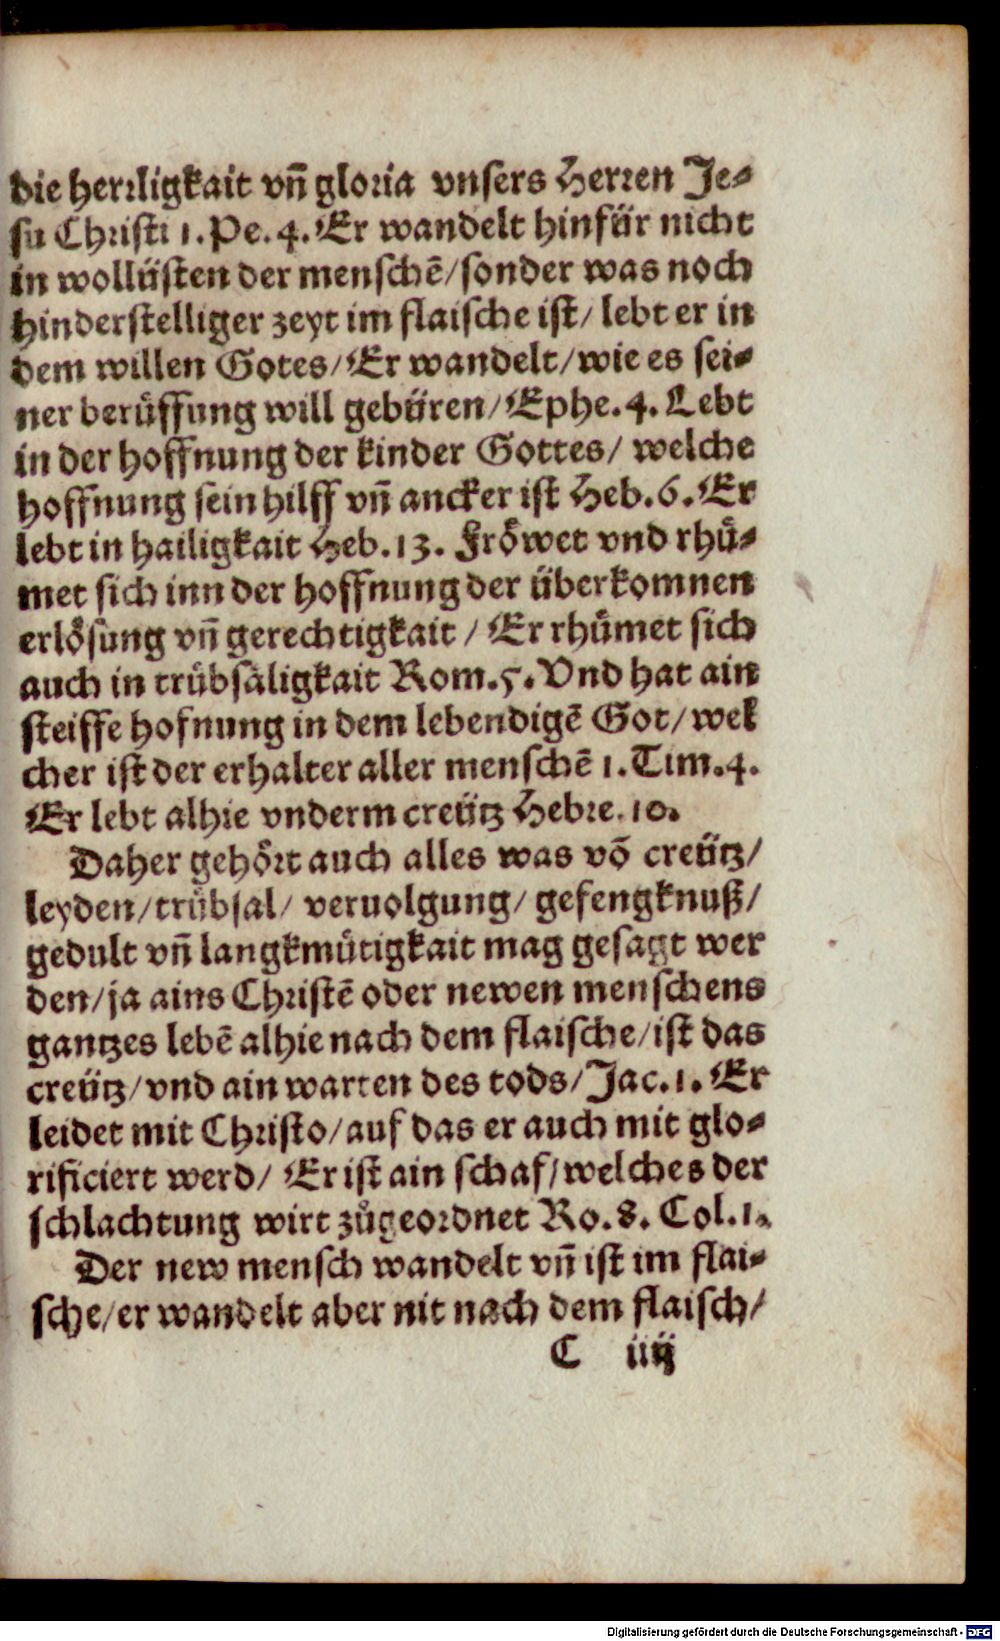 die herrligkait vñ gloria vnsers Herren Je⸗
su Christi 1. Pe. 4. Er wandelt hinfür nicht
in wollüsten der menschē/sonder was noch
hinderstelliger zeyt im flaische ist/ lebt er in
dem willen Gotes/Er wandelt/wie es sei⸗
ner berüffung will gebüren/Ephe. 4. Lebt
in der hoffnung der kinder Gottes/ welche
hoffnung sein hilff vñ ancker ist Heb. 6. Er
lebt in hailigkait Heb. 13. Fröwet vnd rhů⸗
met sich inn der hoffnung der überkomnen
erlösung vñ gerechtigkait / Er rhůmet sich
auch in trübsäligkait Rom. 5. Vnd hat ain
steiffe hofnung in dem lebendigē Got/wel
cher ist der erhalter aller menschē 1. Tim. 4.
Er lebt alhie vnderm creütz Hebre. 10.
Daher gehört auch alles was võ creütz/
leyden/trübsal/ veruolgung/ gefengknuß/
gedult vñ langkmütigkait mag gesagt wer
den/ja ains Christē oder newen menschens
gantzes lebē alhie nach dem flaische/ist das
creütz/vnd ain warten des tods/Jac. 1. Er
leidet mit Christo/auf das er auch mit glo⸗
rificiert werd/ Er ist ain schaf/welches der
schlachtung wirt zůgeordnet Ro. 8. Col. 1.
Der new mensch wandelt vñ ist im flai⸗
sche/er wandelt aber nit nach dem flaisch/
C iiij
Digitalisierung gefördert durch die Deutsche Forschungsgemeinschaft - DFG